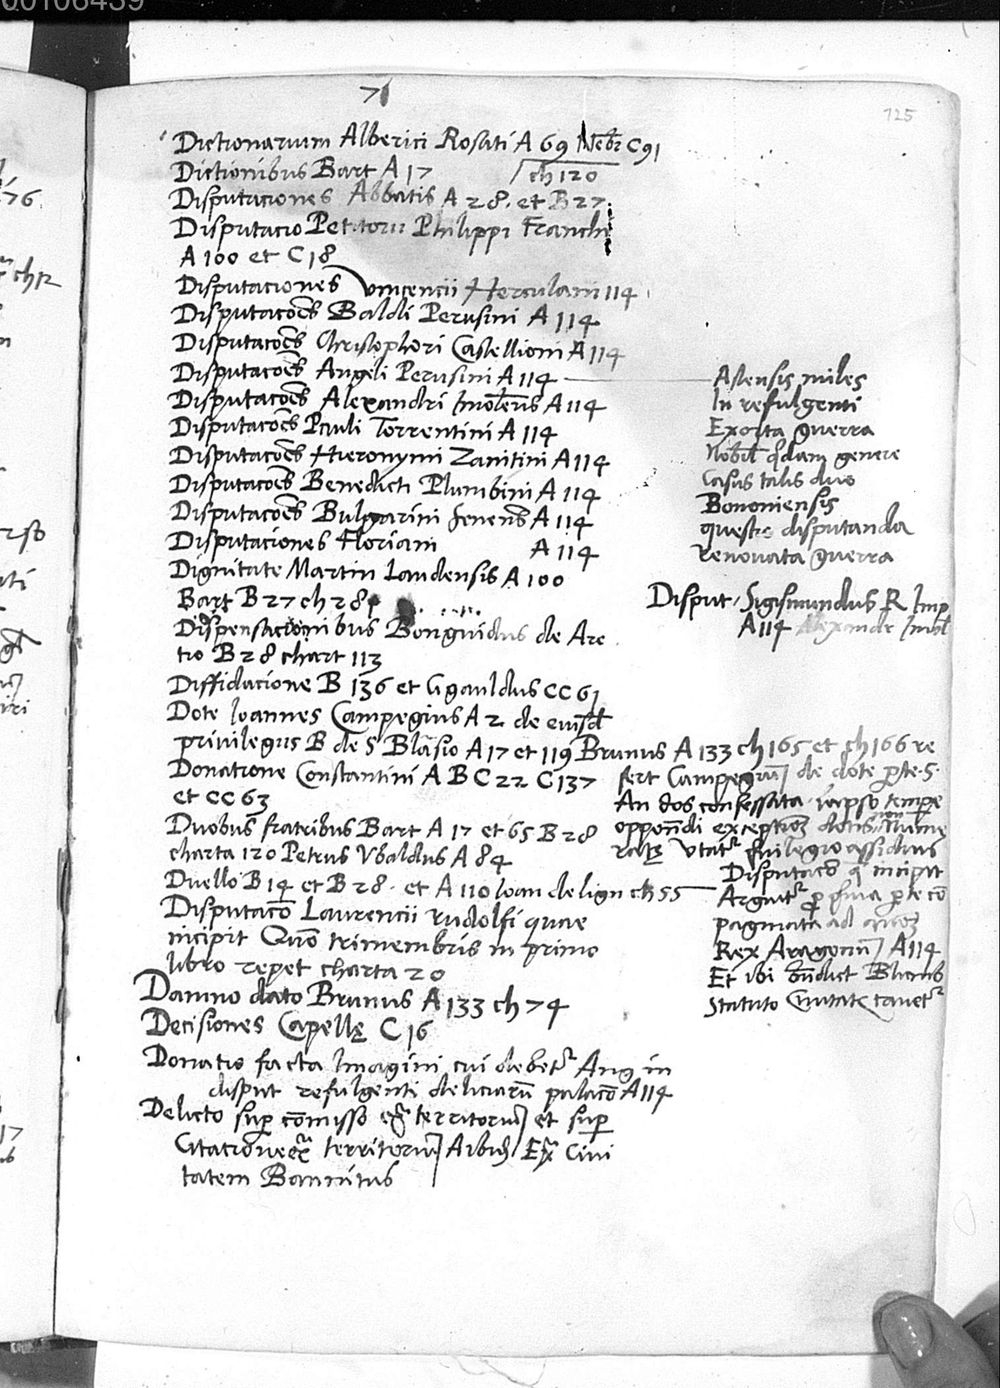 00106439
71
125
Dictionarium Alberici Rosati A 69 Nebr C 91
Dictionibus Bart A 17 ch 120
Disputaciones Abbatis A 28. et B 27
Disputacio Petitorii Philippi Franchi
A 100 et C 18
Disputaciones Vincencii Herculani 114
Disputacoēs Baldi Perusini A 114
Disputacoēs Christophori Castellioni A 114
Disputacoēs Angeli Perusini A 114
Disputacoēs Alexandri Imolēsis A 114
Disputacoēs Pauli Torrentini A 114
Disputacoēs Hieronymi Zanitini A 114
Disputacoēs Benedicti Plumbini A 114
Disputacoēs Bulgarini senenš A 114
Disputaciones Floriani A 114
Dignitate Martin Laudensis A 100
Bart B 27 ch 28
Dispensacionibus Bonguidus de Are
tio B 28 chart 113
Diffidacione B 136 et Ggauldus CC 61
Dote Ioannes Campegius A 2 de eiusd
privilegiis B de S Blasio A 17 et 119 Brunus A 133 ch 165 et ch 166 re
Donatione Constantini A B C 22 C 137
et CC 63
Duobus fratribus Bart A 17 et 65 B 28
charta 120 Petrus Vbaldus A 84
Duello B 14 et B 28. et A 110 Ioan de lign ch 55
Disputacō Laurencii rudolfi quae
incipit Quō trimembris in primo
libro repet charta 20
Damno dato Brunus A 133 ch 74
Decisiones Capellę C 16
Donatio facta Imagini cui debetr Ang in
disput refulgenti deliciarū palacō A 114
Delicto sup cōmisso ex territoriu et sup
Citacione ex territoriu Ex Civi
tatem Bannitus
Astensis miles
In refulgenti
Exorta guerra
Nobil qdam genere
Casus talis duo
Bononiensis
questio disputanda
Renovata guerra
Disput. Sigismundus R Imp
A 114 Alexandr Imol
fert Campegiu de dote pte 5.
An dos confessata tempe
oppondi exceptioē dotis non nume
ratę vtatr privilegio assiduus
Disputacō q incipit
Arguitr p pte co
paginata ad
Rex Aragonu A 114
Et ibi
Statuto Civitatis cavetr